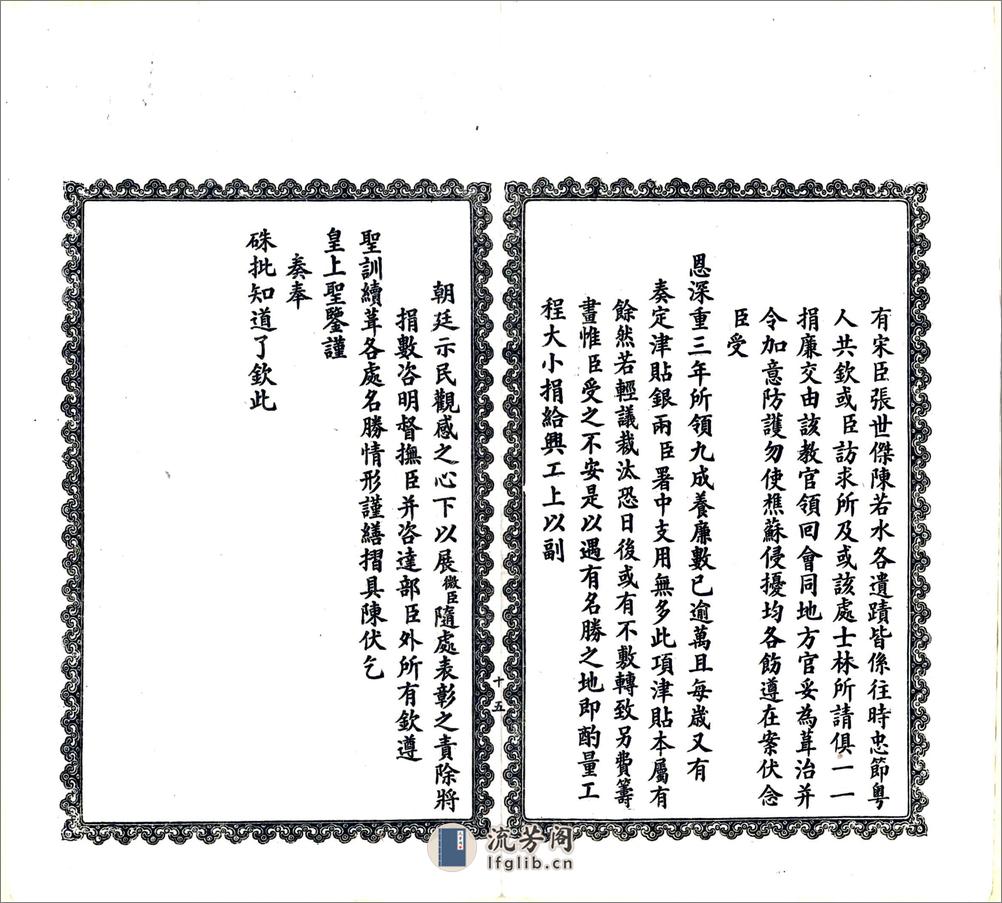 有宋臣張世傑陳若水各遺蹟皆係往時忠節粵
人共欽或臣訪求所及或該處士林所請俱一一
捐廉交由該教官領回會同地方官妥為葺治并
令加意防護勿使樵蘇侵擾均各飭遵在案伏念
臣受
恩深重三年所領九成養廉數已逾萬且每歲又有
奏定津貼銀兩臣署中支用無多此項津貼本屬有
餘然若輕議裁汰恐日後或有不敷轉致另費籌
畫惟臣受之不安是以遇有名勝之地即酌量工
程大小捐給興工上以副
十五
朝廷示民觀感之心下以展微臣隨處表彰之責除將
捐數咨明督撫臣并咨達部臣外所有欽遵
聖訓續葺各處名勝情形謹繕摺具陳伏乞
皇上聖鑒謹
奏奉
硃批知道了欽此
流芳阁
lfglib.cn